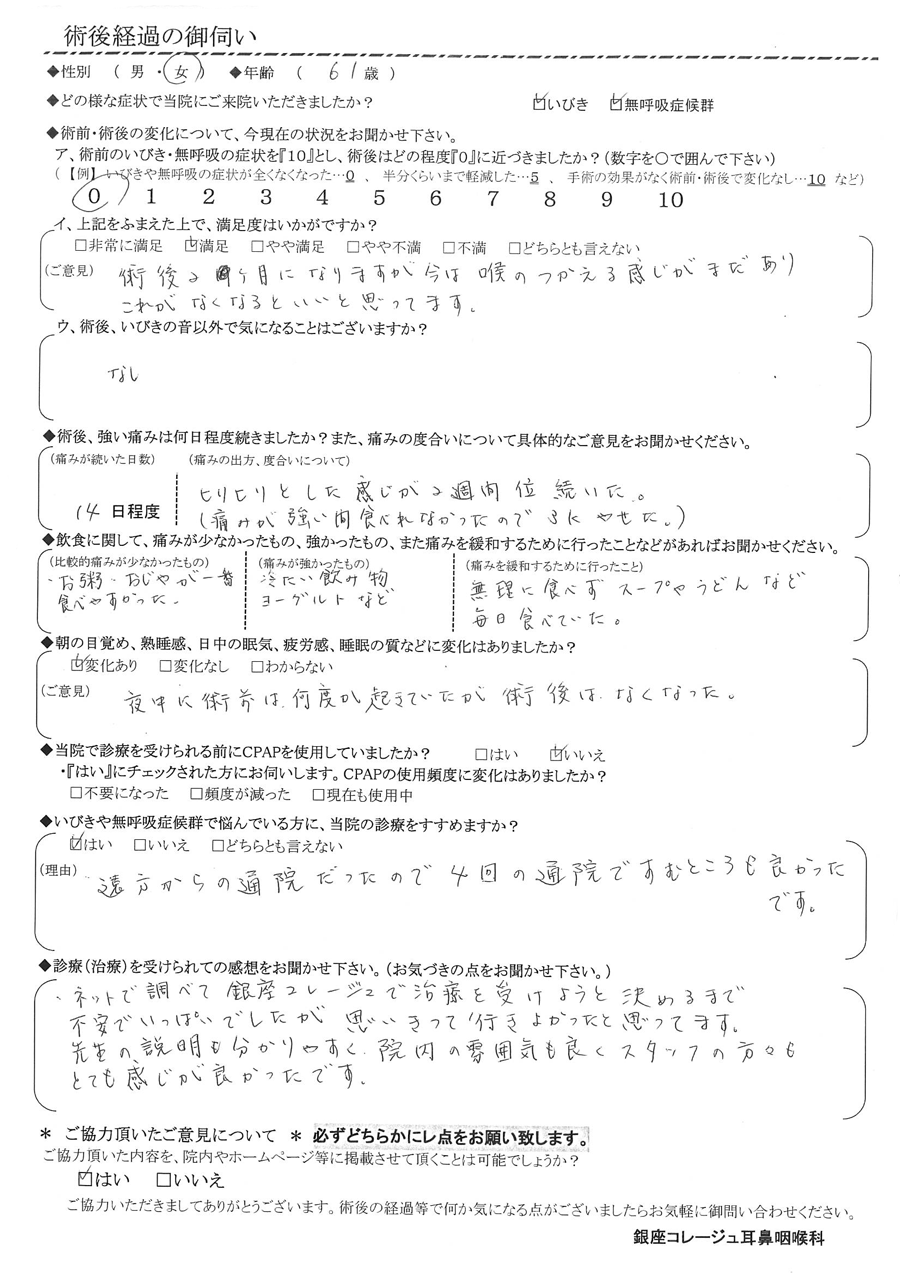 術後経過の御伺い
◆性別 ( 男 ・ 女 ) ◆年齢 ( 61 歳 )
◆どの様な症状で当院にご来院いただきましたか? ☑いびき ☑無呼吸症候群
◆術前・術後の変化について、今現在の状況をお聞かせ下さい。
ア、術前のいびき・無呼吸の症状を『10』とし、術後はどの程度『0』に近づきましたか?(数字を○で囲んで下さい)
(【例】いびきや無呼吸の症状が全くなくなった…0 、 半分くらいまで軽減した…5 、 手術の効果がなく術前・術後で変化なし…10 など)
0 1 2 3 4 5 6 7 8 9 10
イ、上記をふまえた上で、満足度はいかがですか?
□非常に満足 ☑満足 □やや満足 □やや不満 □不満 □どちらとも言えない
(ご意見) 術後2ヶ月になりますが今は喉のつかえる感じがまだあり
これがなくなるといいと思ってます。
ウ、術後、いびきの音以外で気になることはございますか?
なし
◆術後、強い痛みは何日程度続きましたか?また、痛みの度合いについて具体的なご意見をお聞かせください。
(痛みが続いた日数) (痛みの出方、度合いについて)
14 日程度 ヒリヒリとした感じが2週間位続いた。
(痛みが強い間食べれなかったので3kやせた。)
◆飲食に関して、痛みが少なかったもの、強かったもの、また痛みを緩和するために行ったことなどがあればお聞かせください。
(比較的痛みが少なかったもの) (痛みが強かったもの) (痛みを緩和するために行ったこと)
・お粥・おじやが一番 冷たい飲み物 無理に食べず スープやうどんなど
食べやすかった。 ヨーグルトなど 毎日食べていた。
◆朝の目覚め、熟睡感、日中の眠気、疲労感、睡眠の質などに変化はありましたか?
☑変化あり □変化なし □わからない
(ご意見) 夜中に術前は何度か起きていたが術後はなくなった。
◆当院で診療を受けられる前にCPAPを使用していましたか? □はい ☑いいえ
・『はい』にチェックされた方にお伺いします。CPAPの使用頻度に変化はありましたか?
□不要になった □頻度が減った □現在も使用中
◆いびきや無呼吸症候群で悩んでいる方に、当院の診療をすすめますか?
☑はい □いいえ □どちらとも言えない
(理由) 遠方からの通院だったので4回の通院ですむところも良かった
です。
◆診療(治療)を受けられての感想をお聞かせ下さい。(お気づきの点をお聞かせ下さい。)
・ネットで調べて銀座コレージュで治療を受けようと決めるまで
不安でいっぱいでしたが思いきって行きよかったと思ってます。
先生の説明も分かりやすく、院内の雰囲気も良くスタッフの方々も
とても感じが良かったです。
＊ ご協力頂いたご意見について ＊ 必ずどちらかにレ点をお願い致します。
ご協力頂いた内容を、院内やホームページ等に掲載させて頂くことは可能でしょうか?
☑はい □いいえ
ご協力いただきましてありがとうございます。術後の経過等で何か気になる点がございましたらお気軽に御問い合わせください。
銀座コレージュ耳鼻咽喉科